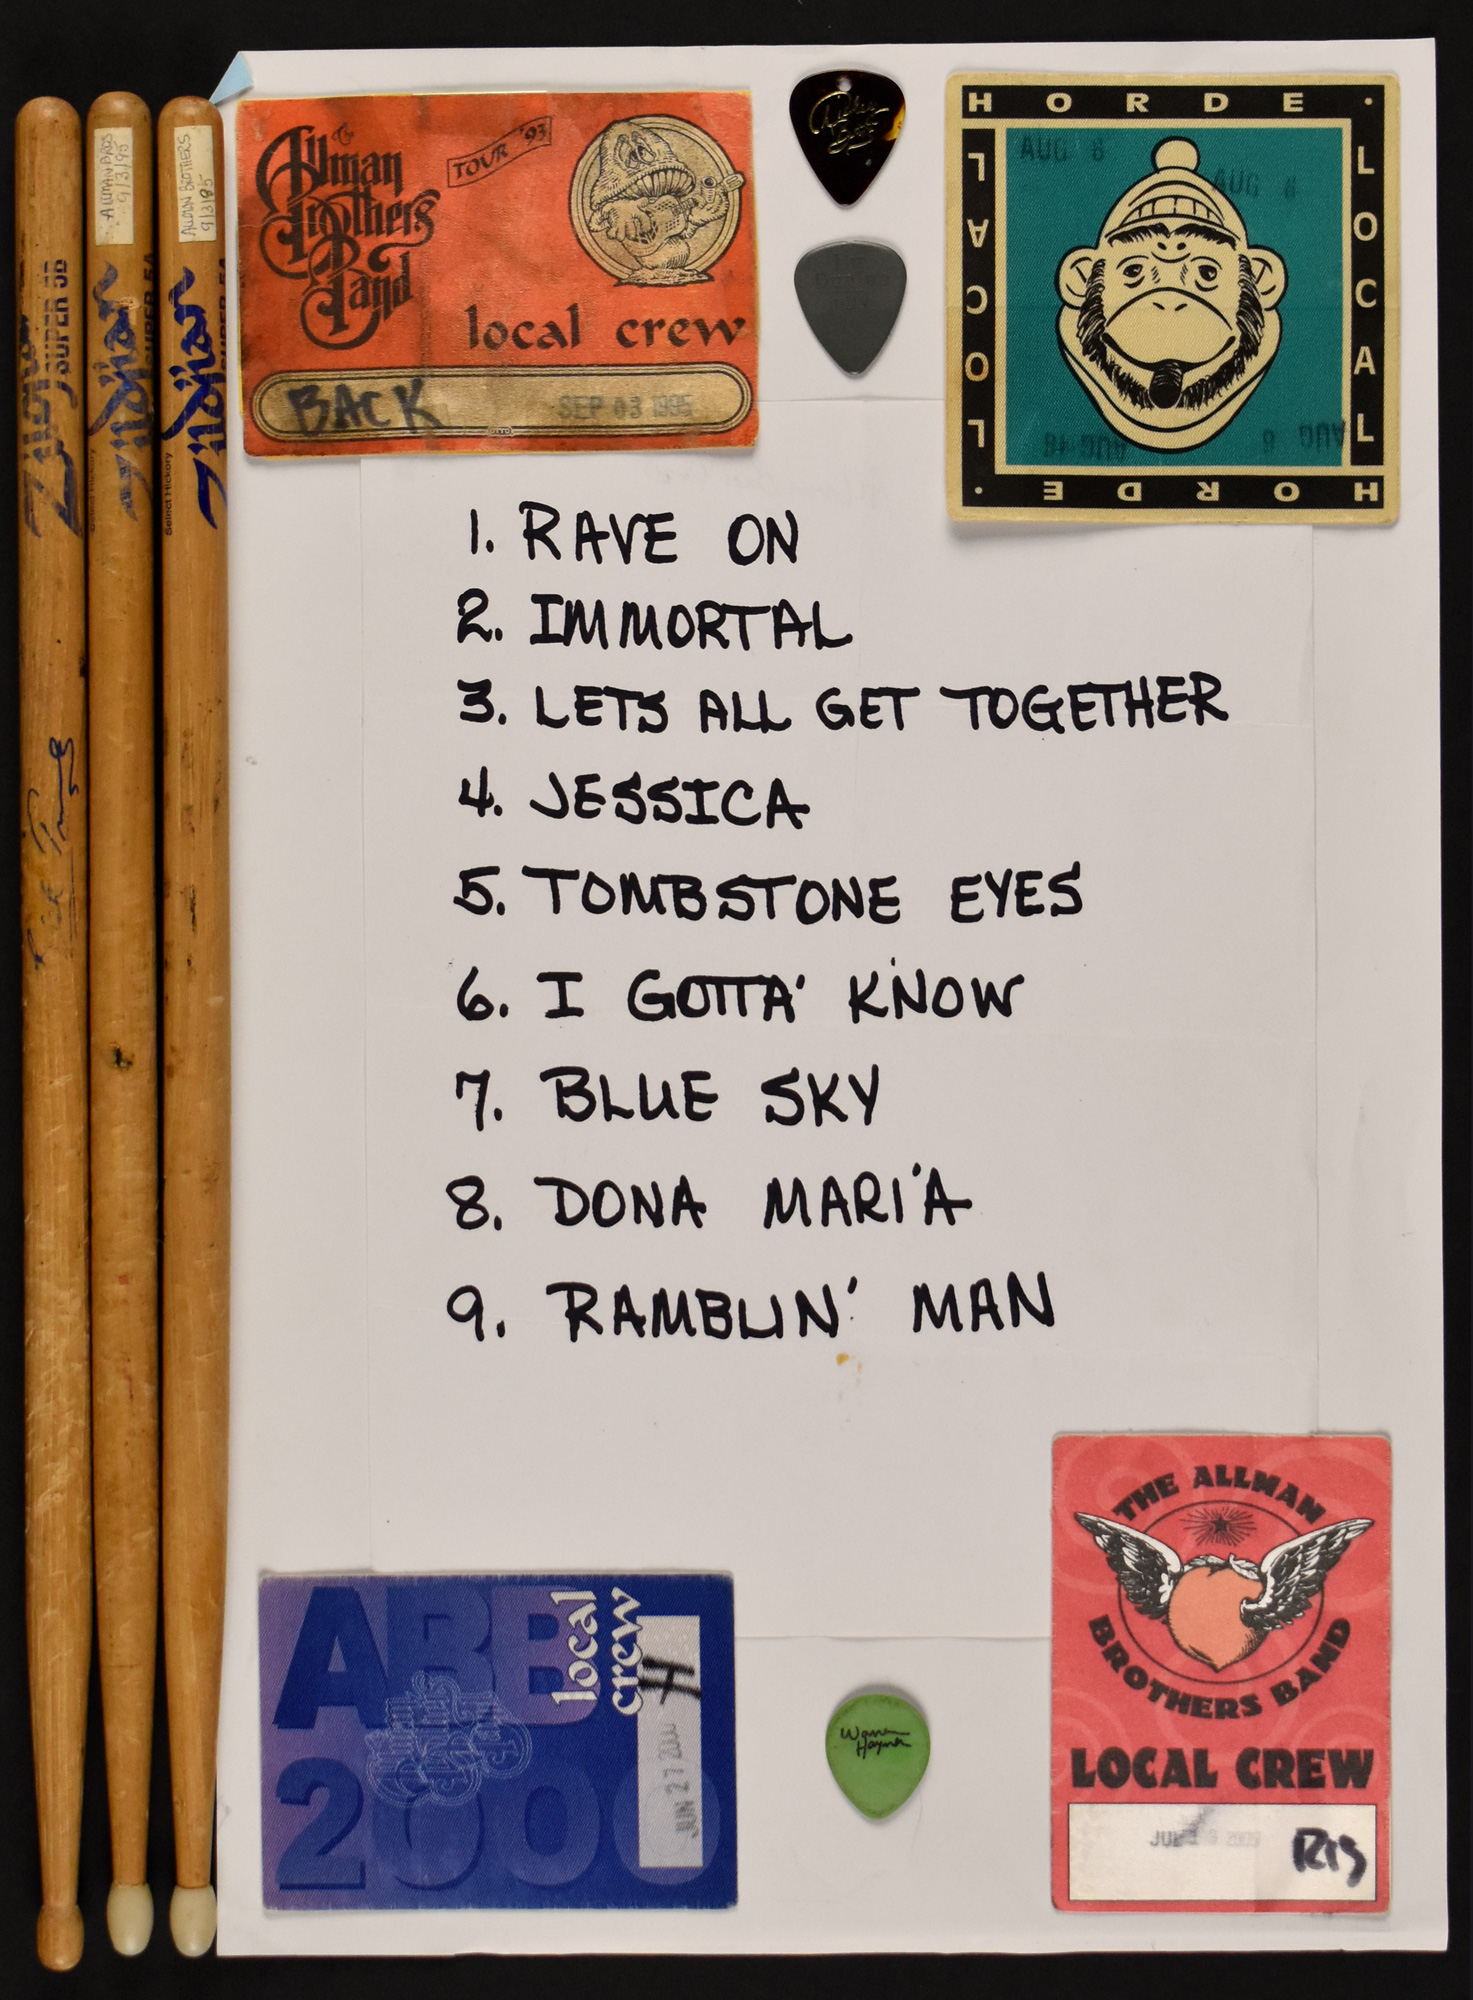 ALLMAN BROS
9/3/95
ALLMAN BROTHERS
9/3/95
Zildjian
SUPER 5B
Zildjian
SUPER 5A
Select Hickory
Zildjian
SUPER 5A
Select Hickory
The
Allman
Brothers
Band
TOUR '93
local crew
BACK
SEP 03 1995
Dickey
Betts
HORDE ·
LOCAL
HORDE ·
LOCAL
AUG 6
AUG
AUG 18
6 AUG
1. RAVE ON
2. IMMORTAL
3. LETS ALL GET TOGETHER
4. JESSICA
5. TOMBSTONE EYES
6. I GOTTA' KNOW
7. BLUE SKY
8. DONA MARI'A
9. RAMBLIN' MAN
ABB
2000
local
crew
H
JUN 27 200
Warren
Haynes
THE ALLMAN
BROTHERS BAND
LOCAL CREW
JUL